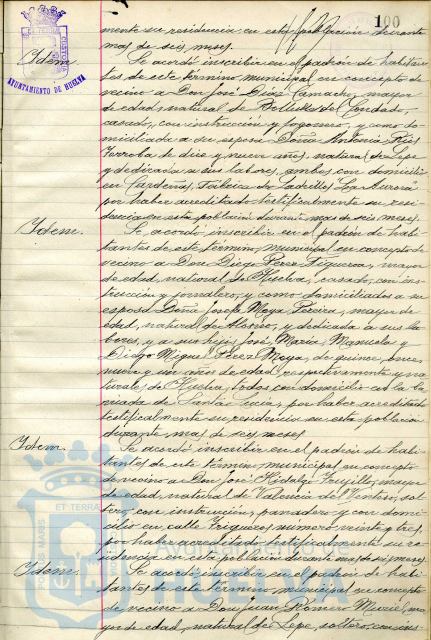 100
mente su residencia en esta población durante
mas de seis meses.
Idem
AYUNTAMIENTO DE HUELVA
Se acordó inscribir en el padrón de habitan-
tes de este termino municipal en concepto de
vecino a Don José Díaz Camacho, mayor
de edad, natural de Bollullos del Condado,
casado, con instrucción y fogonero, y como do-
miciliada a su esposa Doña Antonia Ríos
de diez y nueve años, natural de Lepe
y dedicada a sus labores, ambos con domicilio
en Cardeñas, Fábrica de Ladrillos La Aurora
por haber acreditado testificalmente su resi-
dencia en esta población durante mas de seis meses.
Idem.
Se acordó inscribir en el padrón de habi-
tantes de este término municipal en concepto de
vecino a Don Diego Perez Figueroa, mayor
de edad, natural de Huelva, casado, con ins-
trucción y jornalero, y como domiciliados a su
esposa Doña Josefa Moya Pereira, mayor de
edad, natural de Alosno, y dedicada a sus la-
bores, y a sus hijos José, Maria, Manuela y
Diego Miguel Perez Moya, de quince, once,
nueve y un años de edad respectivamente y na-
turales de Huelva, todos con domicilio en la ba-
rriada de Santa Lucía, por haber acreditado
testificalmente su residencia en esta población
durante mas de seis meses
Idem.
Se acordó inscribir en el padrón de habi-
tantes de este termino municipal en concepto
de vecino a Don José Hidalgo Trujillo, mayor
de edad, natural de Valencia del Ventoso, sol-
tero, con instrucción, panadero y con domi-
cilio en calle numero veinte y tres,
por haber acreditado testificalmente su re-
sidencia en esta población durante mas de seis meses.
Idem.
Se acordó inscribir en el padrón de habi-
tantes de este término municipal en concepto
de vecino a Don Juan Romero ma-
yor de edad, natural de Lepe, soltero, con ins-
ET TERRA
Ayuntamiento de